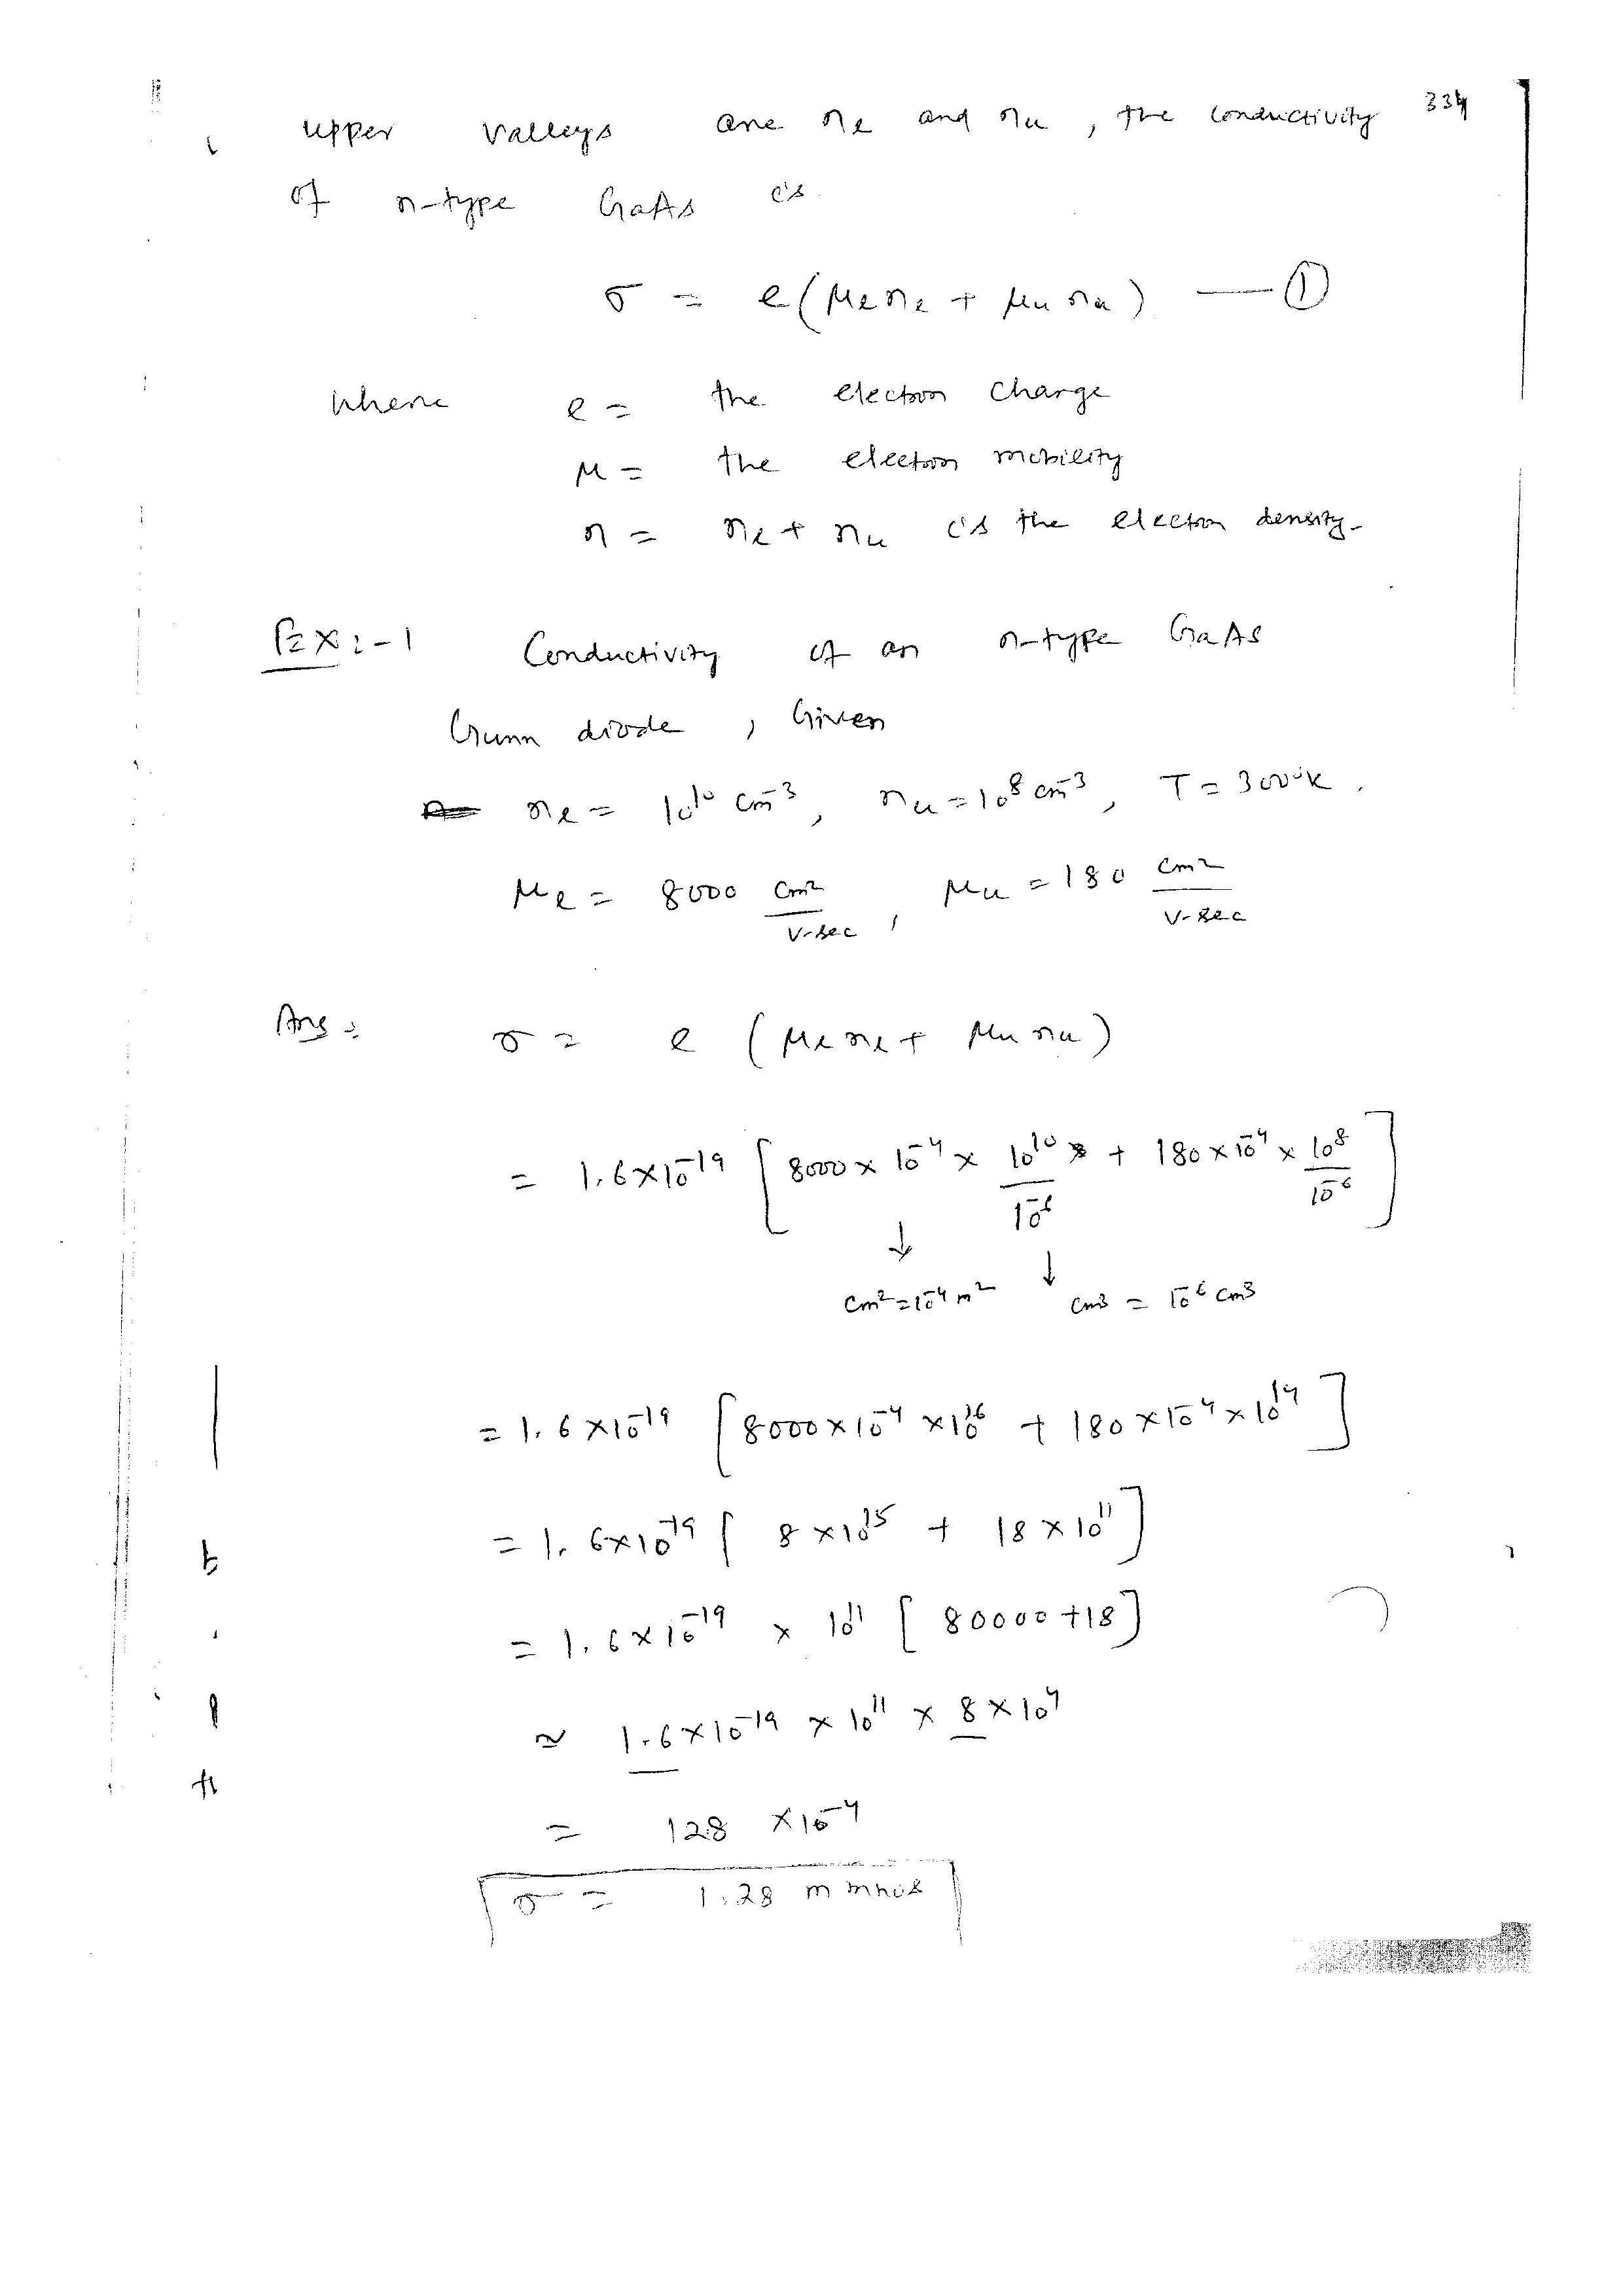 334
upper valleys are nℓ and nu, the conductivity
of n-type GaAs is
σ = e(μℓnℓ + μunu) — ①
where e = the electron charge
μ = the electron mobility
n = nℓ + nu is the electron density.
Ex:-1 Conductivity of an n-type GaAs
Gunn diode, Given
nℓ = 10^10 cm^-3, nu = 10^8 cm^-3, T = 300°K.
μℓ = 8000 cm2/V-sec, μu = 180 cm2/V-sec
Ans: σ = e (μℓnℓ + μunu)
= 1.6×10^-19 [8000 × 10^-4 × 10^10/10^-6 + 180×10^-4 × 10^8/10^-6]
↓ ↓
cm^2 = 10^-4 m^2 cm3 = 10^-6 cm3
= 1.6×10^-19 [8000×10^-4 ×10^16 + 180×10^-4×10^14]
= 1.6×10^-19 [8×10^15 + 18×10^11]
= 1.6×10^-19 × 10^11 [80000+18]
≈ 1.6×10^-19 × 10^11 × 8×10^4
= 128 ×10^-4
σ = 1.28 m mhos